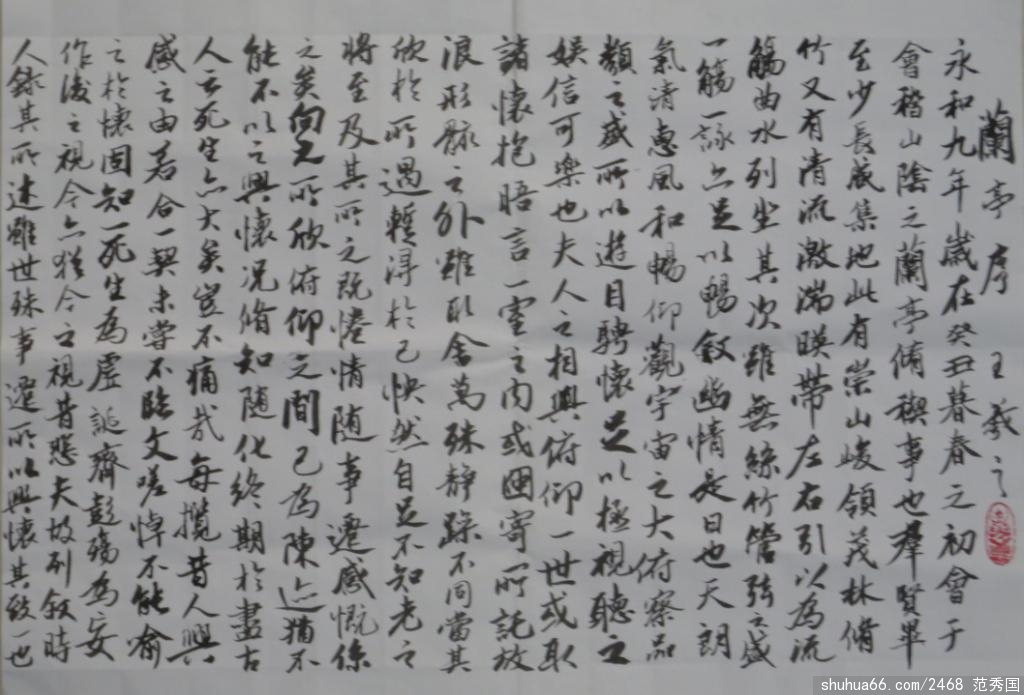 蘭亭序 王羲之
永和九年歲在癸丑暮春之初會于
會稽山陰之蘭亭脩稧事也羣賢畢
至少長咸集地此有崇山峻領茂林脩
竹又有清流激湍暎帶左右引以為流
觴曲水列坐其次雖無絲竹管弦之盛
一觴一詠亦足以暢敘幽情是日也天朗
氣清惠風和暢仰觀宇宙之大俯察品
類之盛所以遊目騁懷足以極視聽之
娛信可樂也夫人之相與俯仰一世或取
諸懷抱晤言一室之內或因寄所託放
浪形骸之外雖取舍萬殊靜躁不同當其
欣於所遇暫得於己快然自足不知老之
將至及其所之既惓情隨事遷感慨係
之矣向之所欣俯仰之間已為陳迹猶不
能不以之興懷況脩短隨化終期於盡古
人云死生亦大矣豈不痛哉每攬昔人興
感之由若合一契未嘗不臨文嗟悼不能喻
之於懷固知一死生為虛誕齊彭殤為妄
作後之視今亦猶今之視昔悲夫故列敘時
人錄其所述雖世殊事遷所以興懷其致一也
shuhua66.com/2468 范秀国